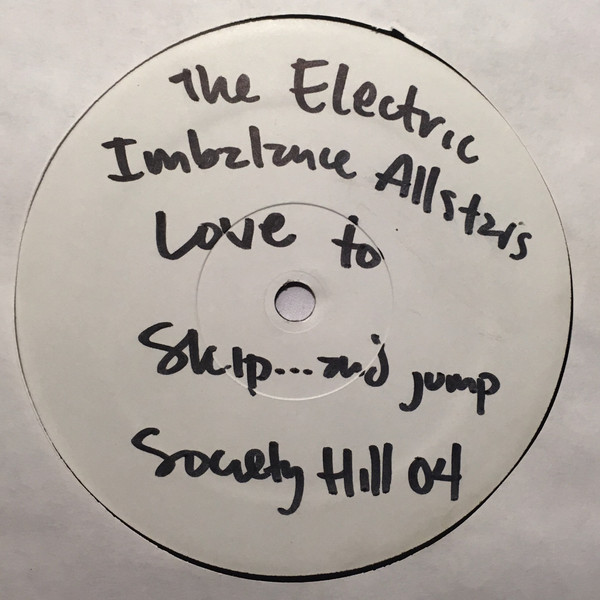 The Electric
Imbalance Allstars
Love to
Skip...and jump
Society Hill 04